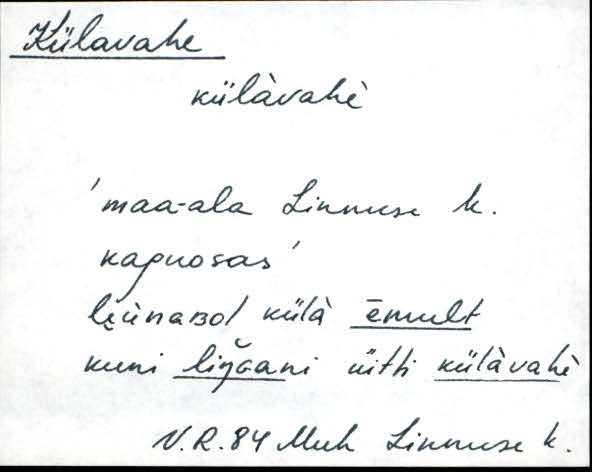 Külavahe
külàvahè
'maa-ala Linnuse k.
kaguosas'
külà ēmult
kuni üitti külàvahè
V.R. 84 Muh Linnuse k.